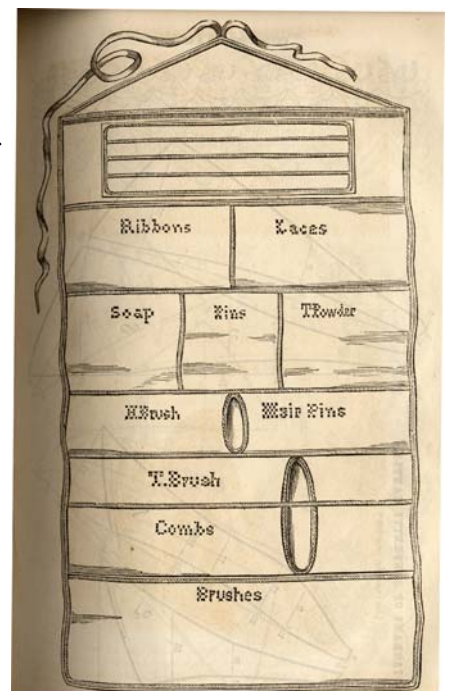 Ribbons Laces
Soap Pins T.Powder
H.Brush Hair Pins
T.Brush
Combs
Brushes